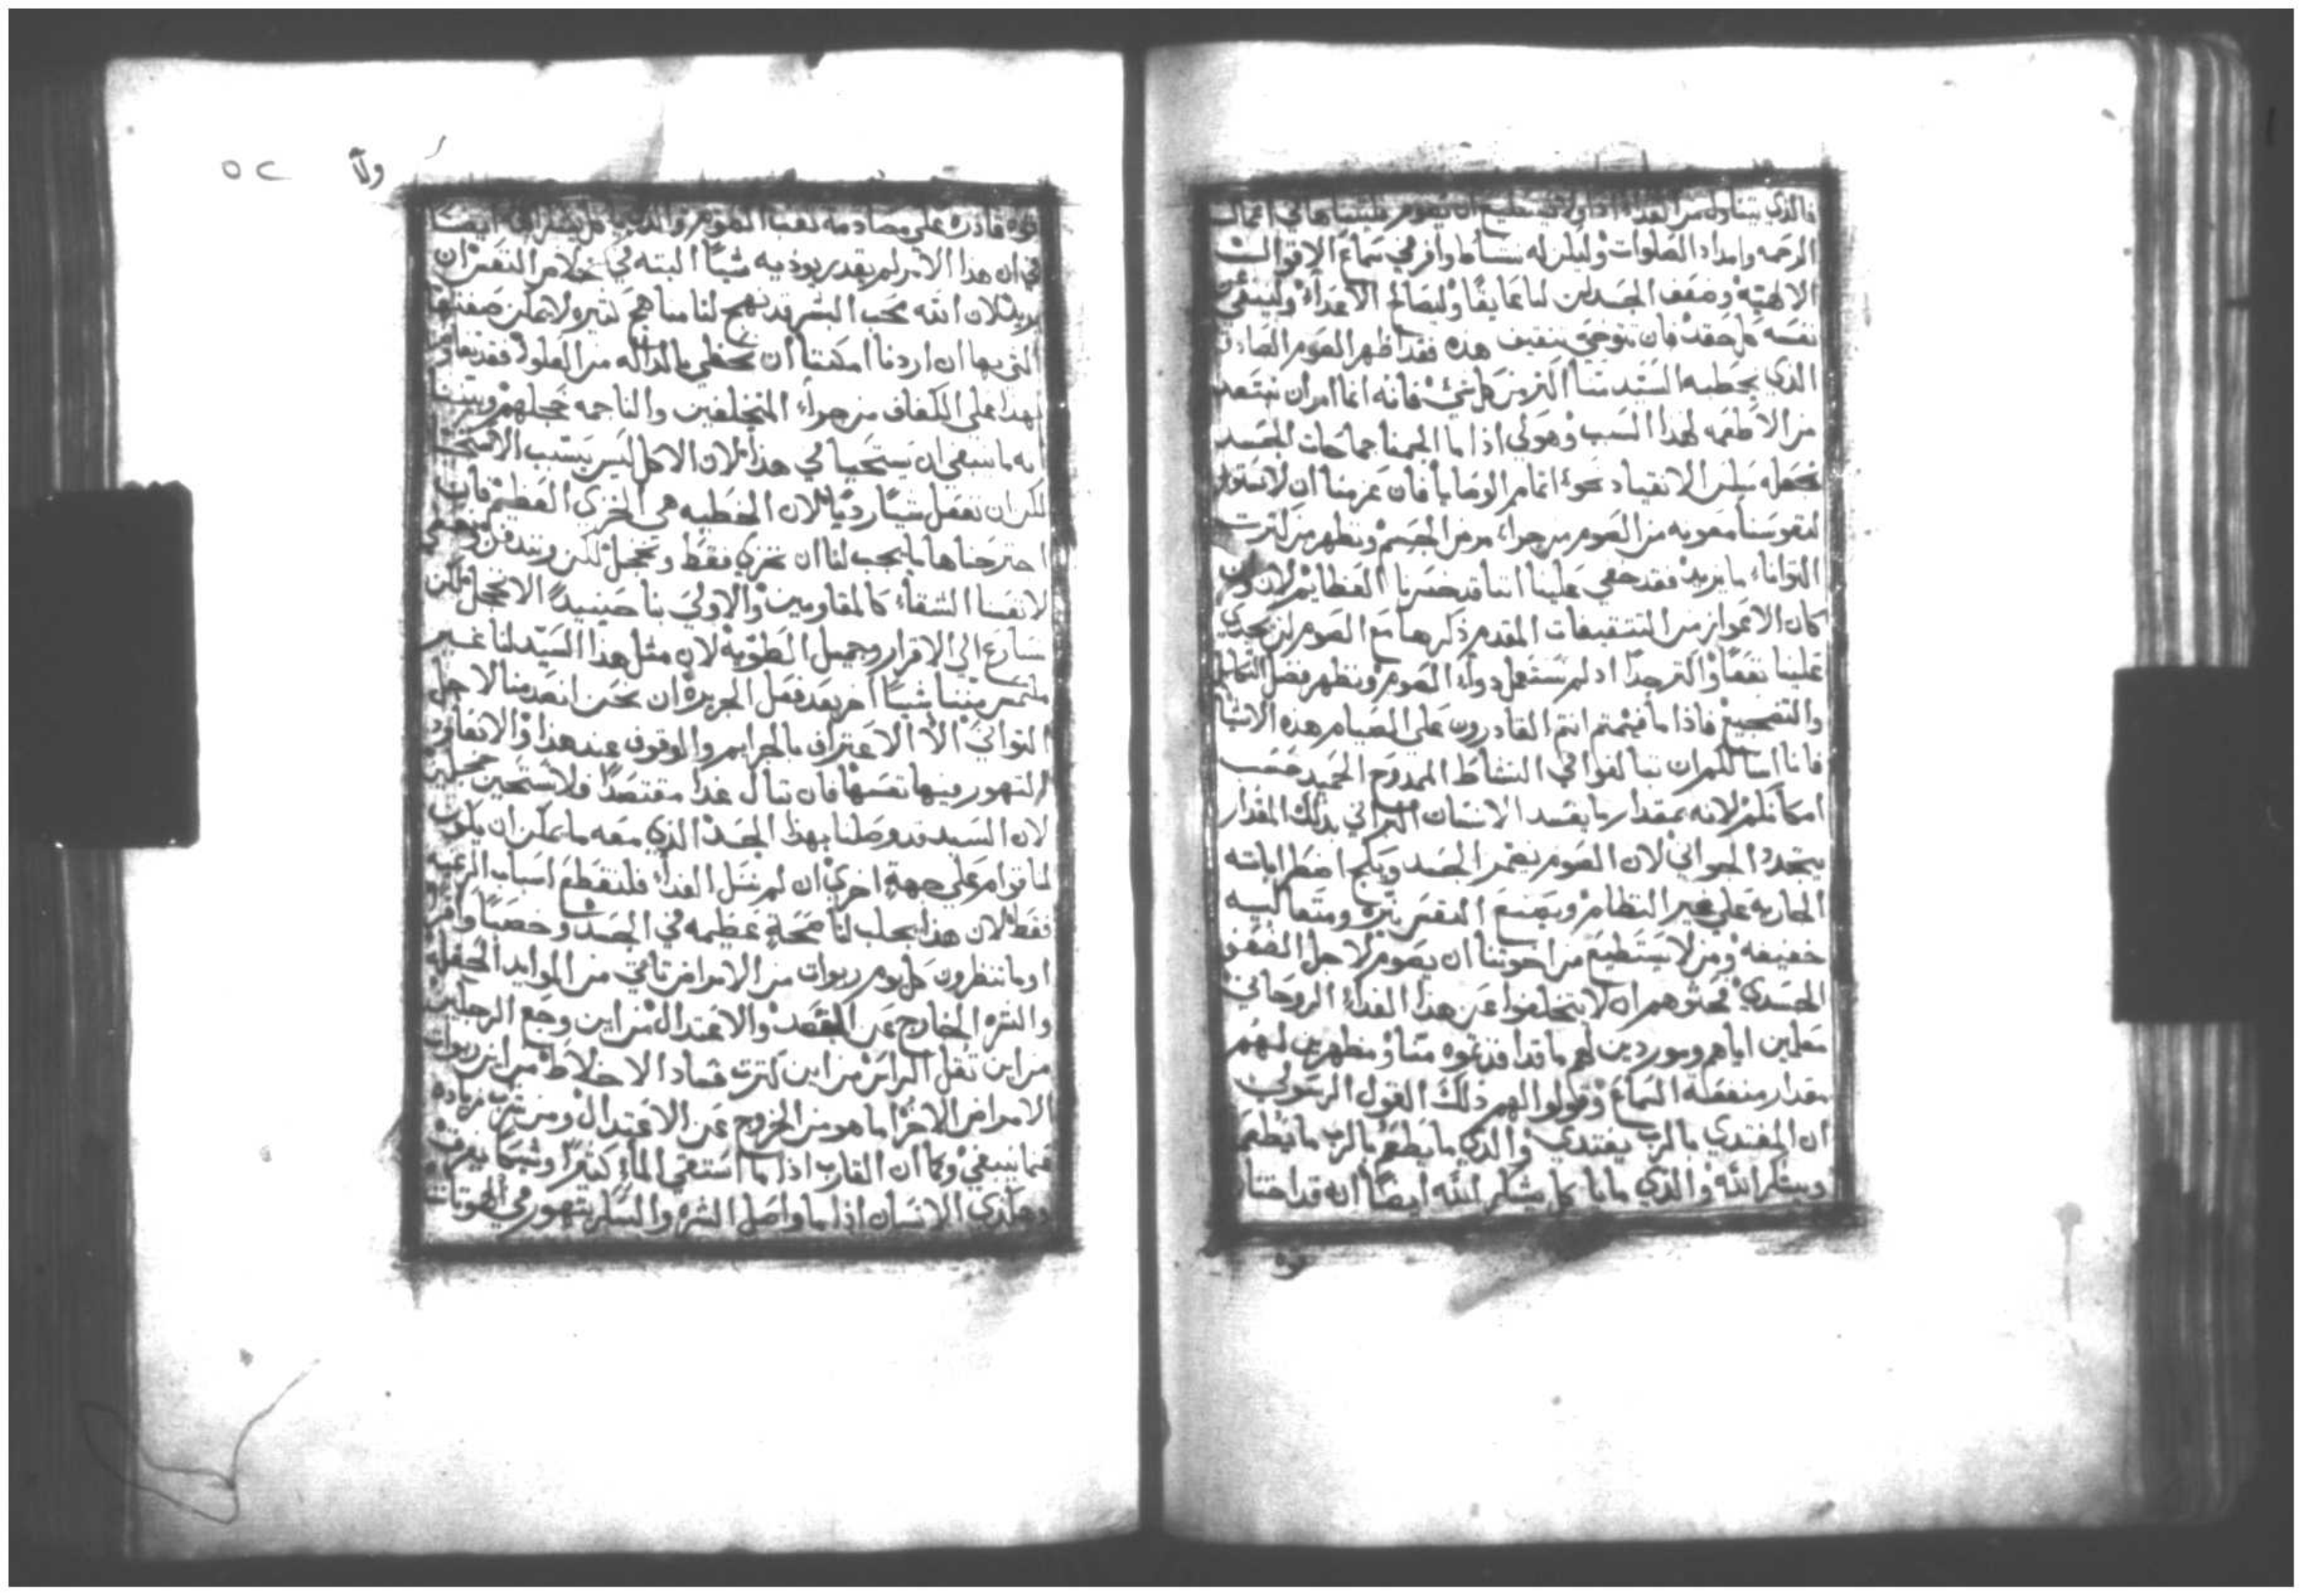 فالذي يتناول من الغداء اذًا ولا يستطيع ان يصوم فليتباها في اعمال
الرحمه وامداد الصلوات وليكن له نشاط وافر في سماع الاقوال
الالهيه وضعف الجسد لن لنا عايقًا وليصالح الاعداء ولينفي من
نفسه كل حقد فان توخى تثقيف هذه فقد اظهر الصوم الصادق
الذي يخطبه السيد منا اكثر من كل شي فانه انما امر ان نبتعد
من الاطعمه لهذا السبب وهو لكي اذا ما الجمنا جماحات الجسد
نجعله سلس الانقياد نحو اتمام الوصايا فان عزمنا ان لا نستورد
لنفوسنا معونه من الصوم من جراء مرض الجسم ونظهر من كثرت
التواناء ما يزيد فقد خفي علينا اننا قد خسرنا العظايم لان وان
كان الاعواز من التثقيفات المقدم ذكرها مع الصوم لن يجدي
علينا نفعًا واكثر جدًا اذ لم نستعمل دواء الصوم ونظهر فضل التكاسل
والتضجيع فاذا ما فهمتم انتم القادرون على الصيام هذه الاشيا
فانا اسالكم ان تبالغوا في النشاط الممدوح الحميد حسب
امكانكم لانه بمقدار ما يفسد الانسان البراني بذلك المقدار
يتجدد الجواني لان الصوم يضمر الجسد ويكبح اضطراباته
الجاريه على غير النظام ويصنع النفس نيره ومتعاليه
خفيفه ومن لا يستطيع من اخوتنا ان يصوم لاجل الضعف
الجسدي فحثوهم ان لا يتخلفوا عن هذا الغداء الروحاني
معلمين اياهم وموردين لهم ما قد افدتموه منا ومظهرين لهم
مقدار منفعة السماع وقولوا لهم ذلك القول الرسولي
ان المغتدي بالرب يغتدي والذي ما يطعم بالرب ما يطعم
ويشكر الله والذي ما ياكل يشكر الله ايضًا انه قد اختار
قوه
٥٢
ولا
قوه قادره على مصادمة تعب الصوم والذي ياكل يشكر الله ايضًا
في ان هذا الامر لم يقدر يوذيه شيًا البته في خلاص النفس ان
يريد لان الله محب البشر قد نهج لنا مناهج كثيره لا يمكن صفتها
التي بها ان اردنا امكننا ان نحظي بالداله من العلو فقد تفاوض
بهذا على الكفاف من جراء المتخلفين والناجمه خجلهم ويتبينا
انه ما ينبغي ان يستحيا في هذا لان الاكل ليس يسبب الاستحيا
لكن ان نفعل شيًا رديًا لان الخطيه هي الخزي العظيم فان
اجترحناها ما يجب لنا ان نخزى فقط ونخجل لكن
لانفسنا الشقاء كالمقاومين والاولى بنا حينيدً الا نخجل لكن
نسارع الى الاقرار وجميل الطويه لان مثل هذا السيد لنا غير
ملتمس مننا شيًا اخر بعد فعل الجريره ان نحن انصدمنا لاجل
التواني الا الاعتراف بالجرايم والوقوف عند هذا والا نعاود
التهور فيها نفسها فان تنال غدا مقتصدًا فلا نستحين خجلين
لان السيد قد وصلنا بهذا الجسد الذي معه ما يمكن ان يكون
لنا قوام على جهةٍ اخرى ان لم ننل الغداء فلنقطع اسباب الرغبه
فقط لان هذا يجلب لنا صحة عظيمه في الجسد وخصبًا وافر
او ما تنظرون كل يوم ربوات من الامراض تاتي من الموايد الحفله
والشره الخارج عن القصد والاعتدال من اين وجع الرجلين
من اين ثقل الراس من اين كثرت فساد الاخلاط من اين ربوات
الامراض الاخر اما هو من الخروج عن الاعتدال ومن شرب زياده
عما ينبغي وكما ان القارب اذا ما استقى الماء كثيرًا وشيكًا يغرق
وهكذي الانسان اذا ما واصل الشره والسكر يتهور في الهوتات